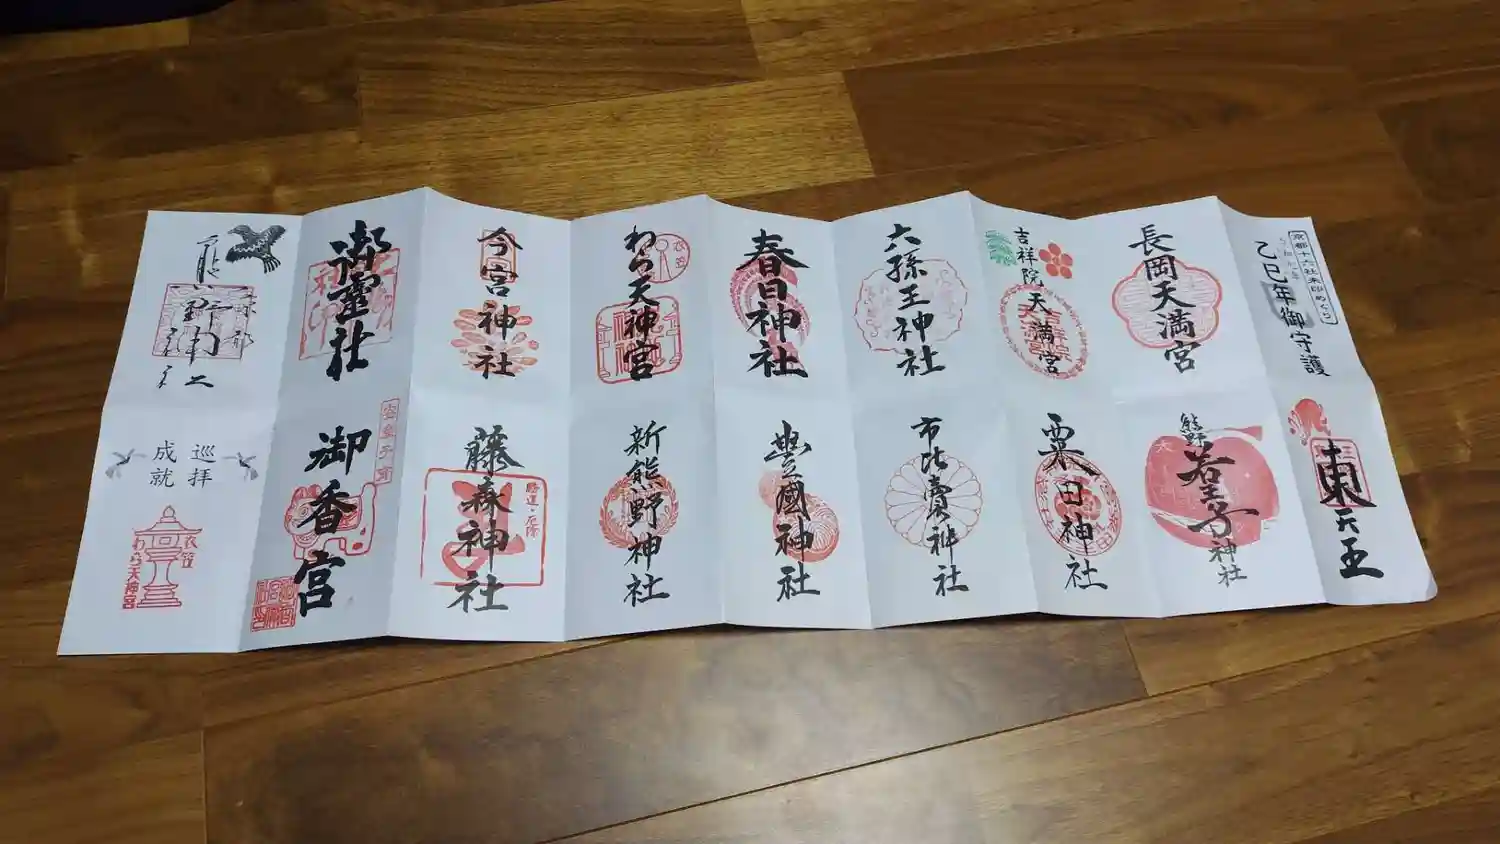 京都十六社朱印めぐり
乙巳年御守護
長岡天満宮
吉祥院
天満宮
六孫王神社
春日神社
わら天神宮
衣笠
今宮神社
御靈社
東天王
熊野
若王子
神社
粟田神社
市比賣神社
豐國神社
新熊野神社
藤森神社
御香宮
巡拝
成就
衣笠
わら天神宮